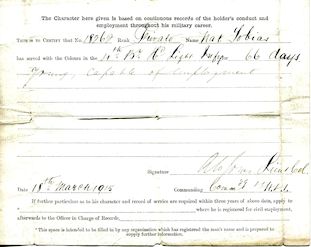 The Character here given is based on continuous records of the holder's conduct and
employment throughout his military career.
This is to Certify that No. 18262 Rank Private Name Nat Tobias
has served with the Colours in the 11th Bn. R. Light Infy 66 days
Young, capable of employment
Signature Lieut Col.
Date 18th March 1915 Commanding
If further particulars as to his character and record of service are required within three years of above date, apply to
where he is registered for civil employment,
afterwards to the Officer in Charge of Records.
*This space is intended to be filled in by any organisation which has registered the man's name and is prepared to
supply further information.